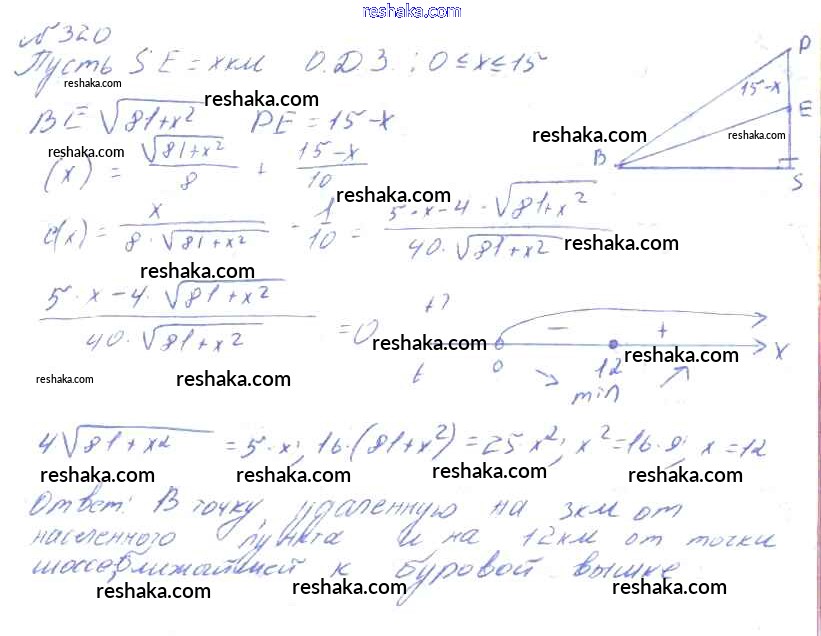 reshaka.com
№ 320
Пусть SE = x км О.Д.З.: 0 ≤ x ≤ 15
reshaka.com
reshaka.com
BE √81+x² PE = 15-x
reshaka.com
P
15-x
E
reshaka.com
B
S
reshaka.com
(x) = √81+x² / 8 + 15-x / 10
reshaka.com
(x) = x / 8·√81+x² - 1 / 10 = 5·x-4·√81+x² / 40·√81+x²
reshaka.com
reshaka.com
5·x-4·√81+x² / 40·√81+x² = 0
reshaka.com
- +
reshaka.com
0 12 x
min
reshaka.com
reshaka.com
4√81+x2 = 5·x; 16·(81+x²) = 25·x²; x²=16·9; x=12
reshaka.com
reshaka.com
reshaka.com
reshaka.com
Ответ: В точку, удаленную на 3км от
населенного пункта и на 12км от точки
reshaka.com
reshaka.com
reshaka.com
reshaka.com
шоссе, ближайшей к буровой вышке
reshaka.com
reshaka.com
reshaka.com